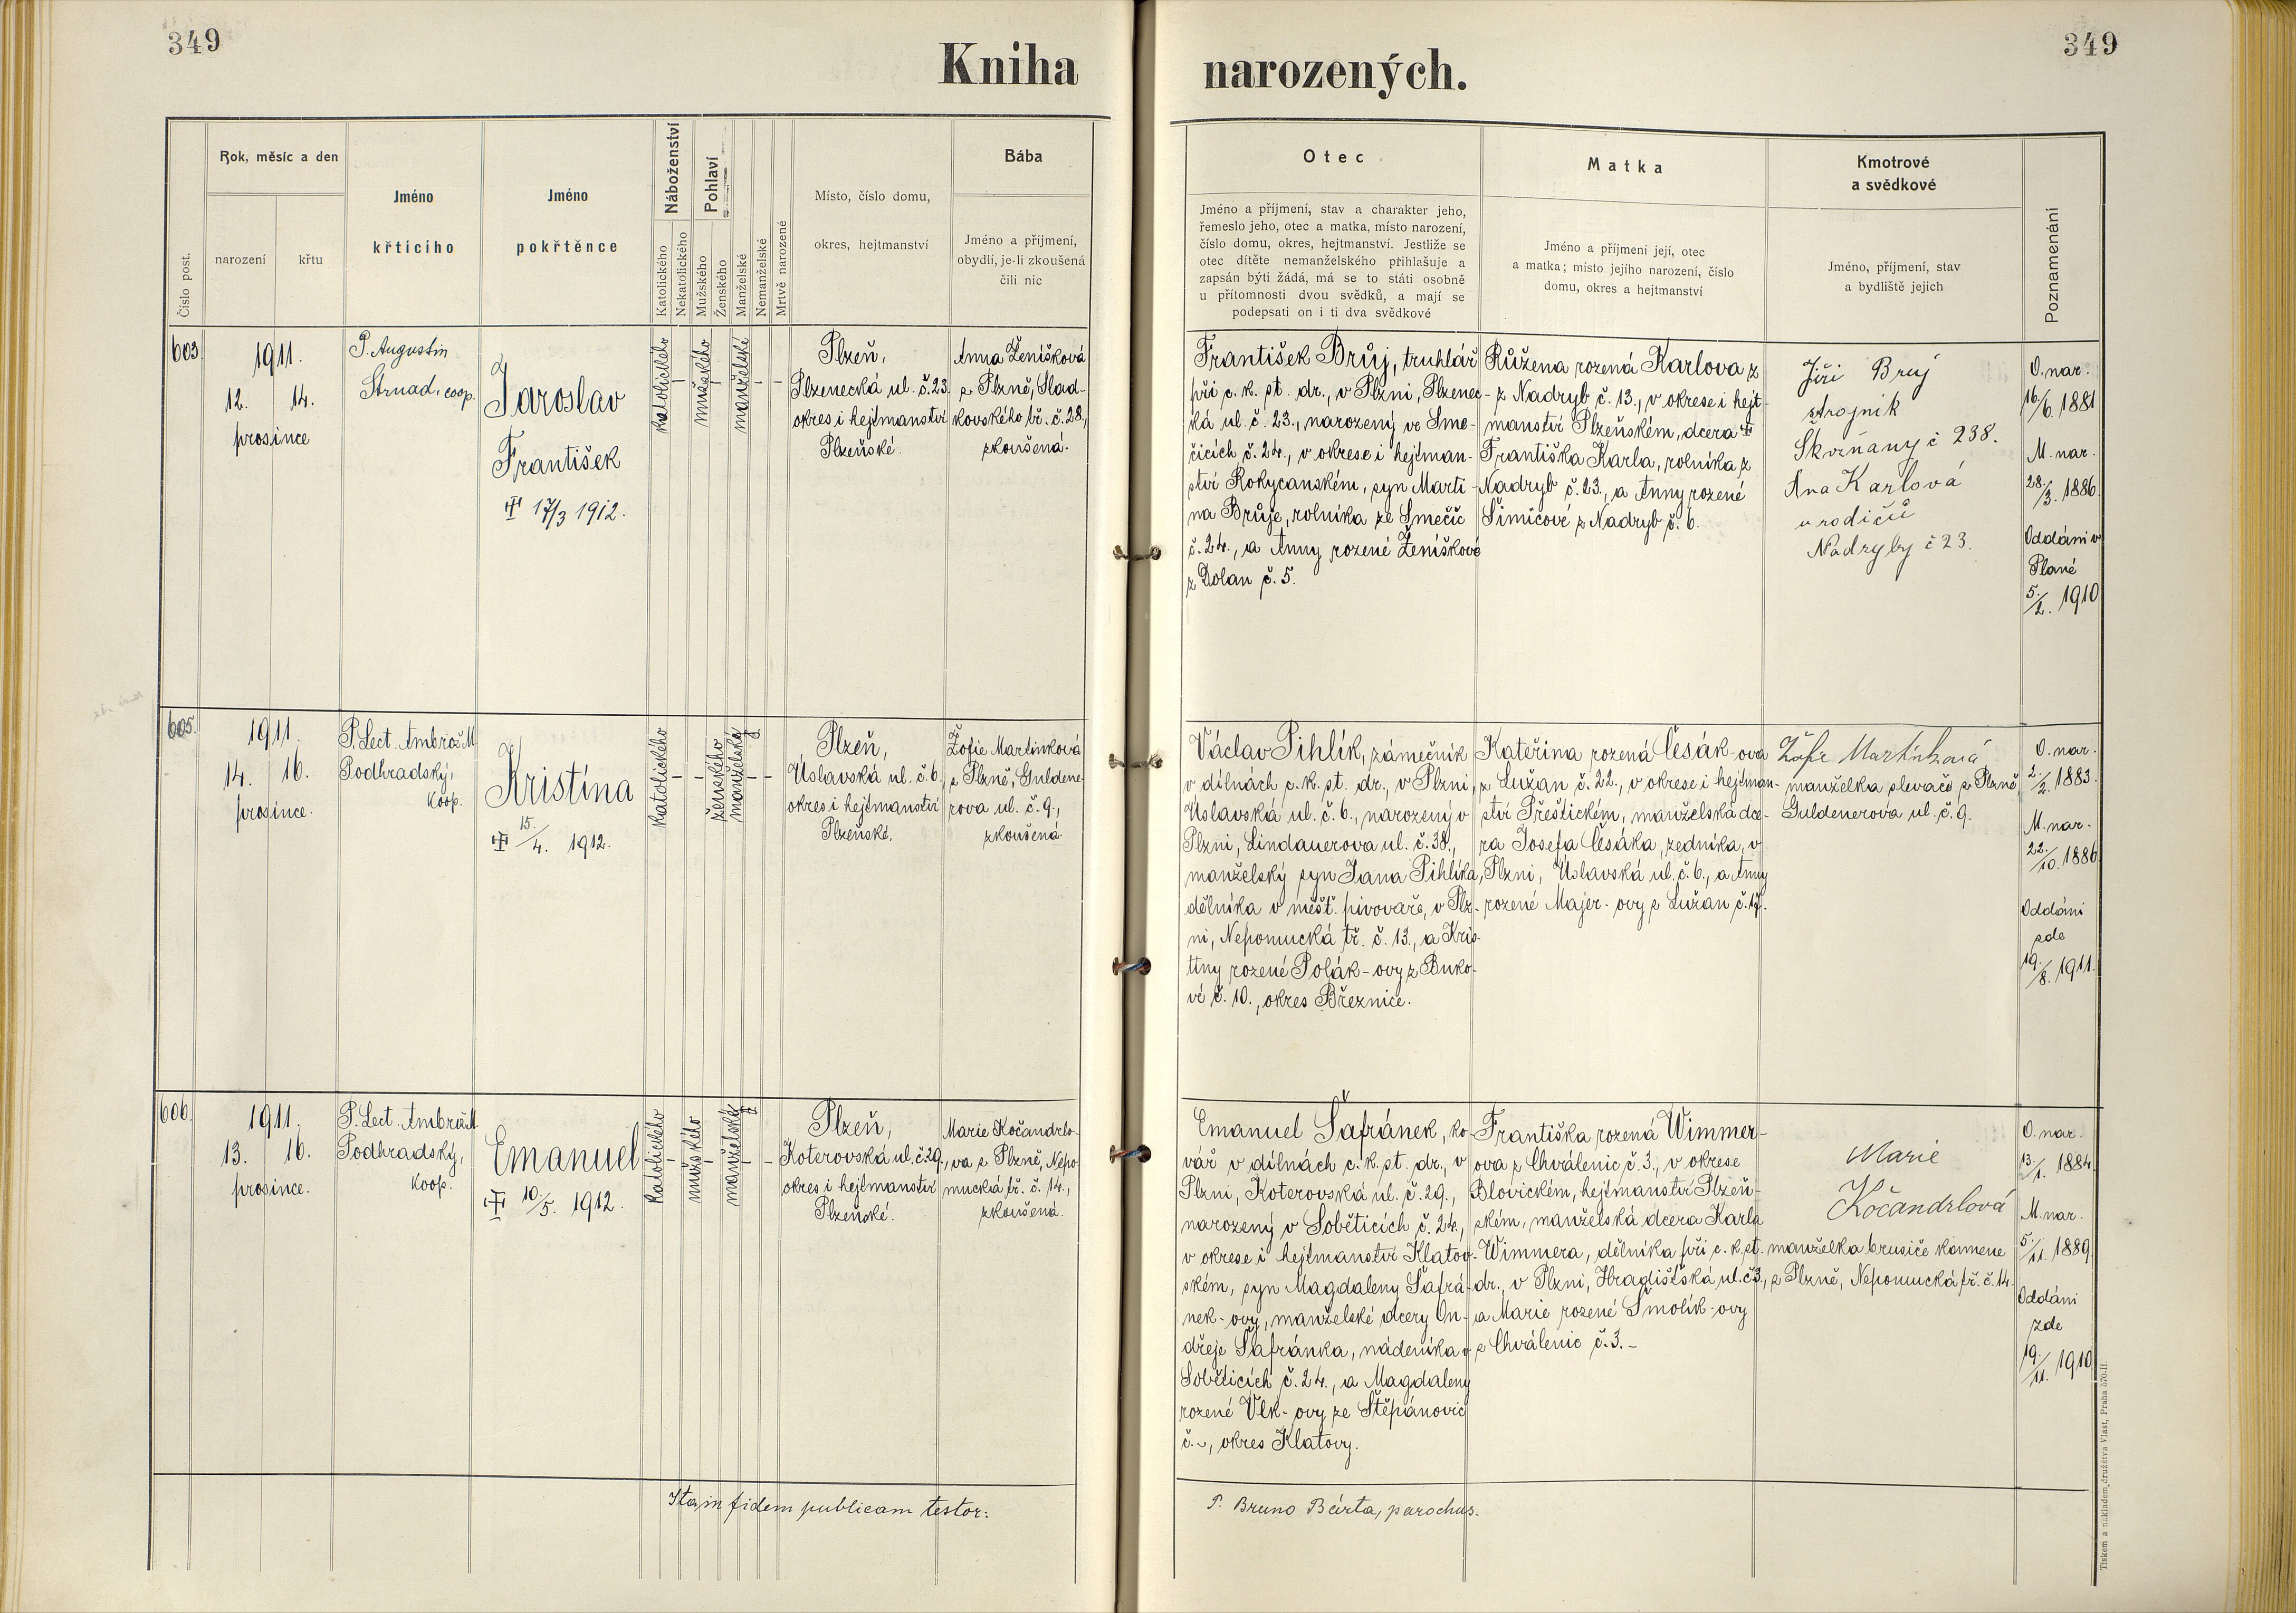 349
349
Kniha narozených.
Číslo post.
Rok, měsíc a den
narození
křtu
Jméno
křtícího
Jméno
pokřtěnce
Náboženství
Katolického
Nekatolického
Pohlaví
Mužského
Ženského
Manželské
Nemanželské
Mrtvě narozené
Místo, číslo domu,
okres, hejtmanství
Bába
Jméno a příjmení,
obydlí, je-li zkoušená
čili nic
Otec
Jméno a příjmení, stav a charakter jeho,
řemeslo jeho, otec a matka, místo narození,
číslo domu, okres, hejtmanství. Jestliže se
otec dítěte nemanželského přihlašuje a
zapsán býti žádá, má se to státi osobně
u přítomnosti dvou svědků, a mají se
podepsati on i ti dva svědkové
Matka
Jméno a příjmení její, otec
a matka; místo jejího narození, číslo
domu, okres a hejtmanství
Kmotrové
a svědkové
Jméno, příjmení, stav
a bydliště jejich
Poznamenání
603.
1911.
12. 14.
prosince
P. Augustin
Strnad, coop.
Jaroslav
František
17/3 1912.
katolického
mužského
manželské
Plzeň,
Plzenecká ul. č. 23.
okres i hejtmanství
Plzeňské.
Anna Ženíšková
z Plzně, Slad-
kovského tř. č. 28,
zkoušená.
František Brůj, truhlář
při c. k. st. dr., v Plzni, Plzenec-
ká ul. č. 23., narozený ve Sme-
čicích č. 24., v okrese i hejtman-
ství Rokycanském, syn Marti-
na Brůje, rolníka ze Smečic
č. 24., a Anny rozené Ženíškové
z Dolan č. 5.
Růžena rozená Karlova z
z Nadryb č. 13., v okrese i hejt-
manství Plzeňském, dcera
Františka Karla, rolníka z
Nadryb č. 23., a Anny rozené
Šimicové z Nadryb č. 6.
Jiří Bruj
strojník
Skvrňany č 238.
Ana Karlová
u rodičů
Nadryby č 23.
O. nar.
16./6. 1881
M. nar.
28./3. 1886.
Oddáni v
Plané
5./2. 1910
605.
1911.
14. 16.
prosince.
P. Lect. Ambrož M.
Podhradský,
koop.
Kristina
15./4. 1912.
katolického
ženského
manželské
Plzeň,
Úslavská ul. č. 6.,
okres i hejtmanství
Plzeňské.
Žofie Martínková
z Plzně, Guldene-
rova ul. č. 9.,
zkoušená.
Václav Pihlík, zámečník
v dílnách c. k. st. dr., v Plzni,
Úslavská ul. č. 6., narozený v
Plzni, Lindauerova ul. č. 38.,
manželský syn Jana Pihlíka,
dělníka v měšť. pivovaře, v Plz-
ni, Nepomucká tř. č. 13., a Kris-
tiny rozené Polák-ovy z Buko-
vé č. 10., okres Březnice.
Kateřina rozená Česák-ova
z Lužan č. 22., v okrese i hejtman-
ství Přeštickém, manželská dce-
ra Josefa Česáka, zedníka, v
Plzni, Úslavská ul. č. 6., a Anny
rozené Majer-ovy z Lužan č. 17.
Žofie Martínková
manželka slevače z Plzně,
Guldenerova ul. č. 9.
O. nar.
2./2. 1883.
M. nar.
22./10. 1886
Oddáni
zde
19./8. 1911.
606.
1911.
13. 16.
prosince.
P. Lect. Ambrož M.
Podhradský,
koop.
Emanuel
10./5. 1912.
katolického
mužského
manželské
Plzeň,
Koterovská ul. č. 29.,
okres i hejtmanství
Plzeňské.
Marie Kočandrlo-
va z Plzně, Nepo-
mucká tř. č. 14.,
zkoušená.
Emanuel Šafránek, ko-
vář v dílnách c. k. st. dr., v
Plzni, Koterovská ul. č. 29.,
narozený v Soběticích č. 24.,
v okrese i hejtmanství Klatov-
ském, syn Magdaleny Šafrá-
nek-ovy, manželské dcery On-
dřeje Šafránka, nádeníka v
Soběticích č. 24., a Magdaleny
rozené Vlk-ovy ze Štěpánovic
č. -, okres Klatovy.
Františka rozená Wimmer-
ova z Chválenic č. 3., v okrese
Blovickém, hejtmanství Plzeň-
ském, manželská dcera Karla
Wimmera, dělníka při c. k. st.
dr., v Plzni, Hradišťská ul. č. 3.,
a Marie rozené Smolík-ovy
z Chválenic č. 3. -
Marie
Kočandrlová
manželka brusiče kamene
z Plzně, Nepomucká tř. č. 14.
O. nar.
13./1. 1884.
M. nar.
5./11. 1889.
Oddáni
zde
19./11. 1910
Ita in fidem publicam testor:
P. Bruno Bárta, parochus.
Tiskem a nákladem družstva Vlast, Praha 570-II.